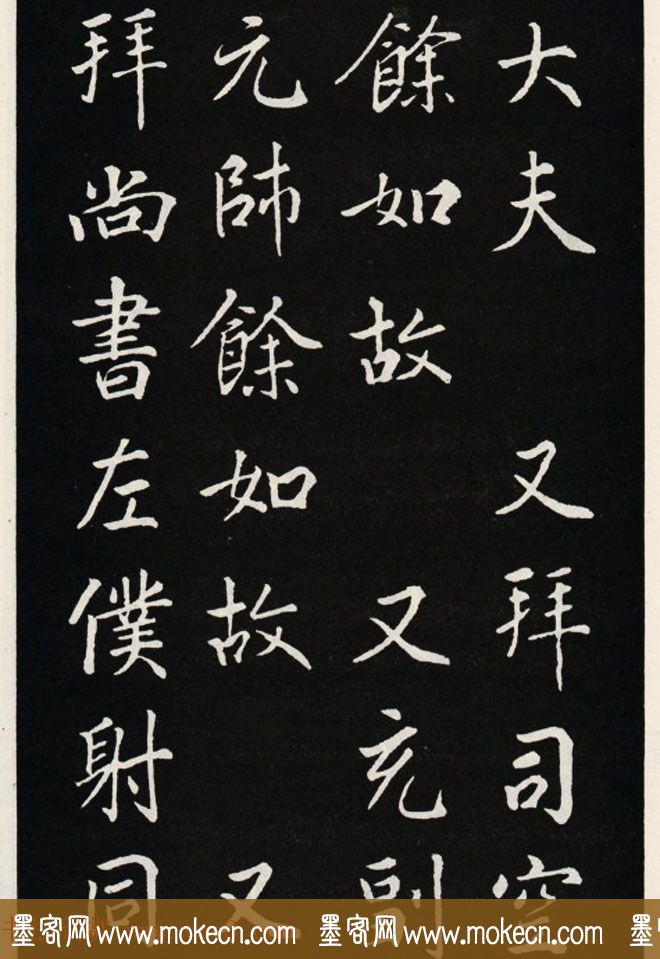 大夫 又拜司空
餘如故 又充副
元帥餘如故 又
拜尚書左僕射同
墨客网 www.mokecn.com 墨客网 www.mokecn.com